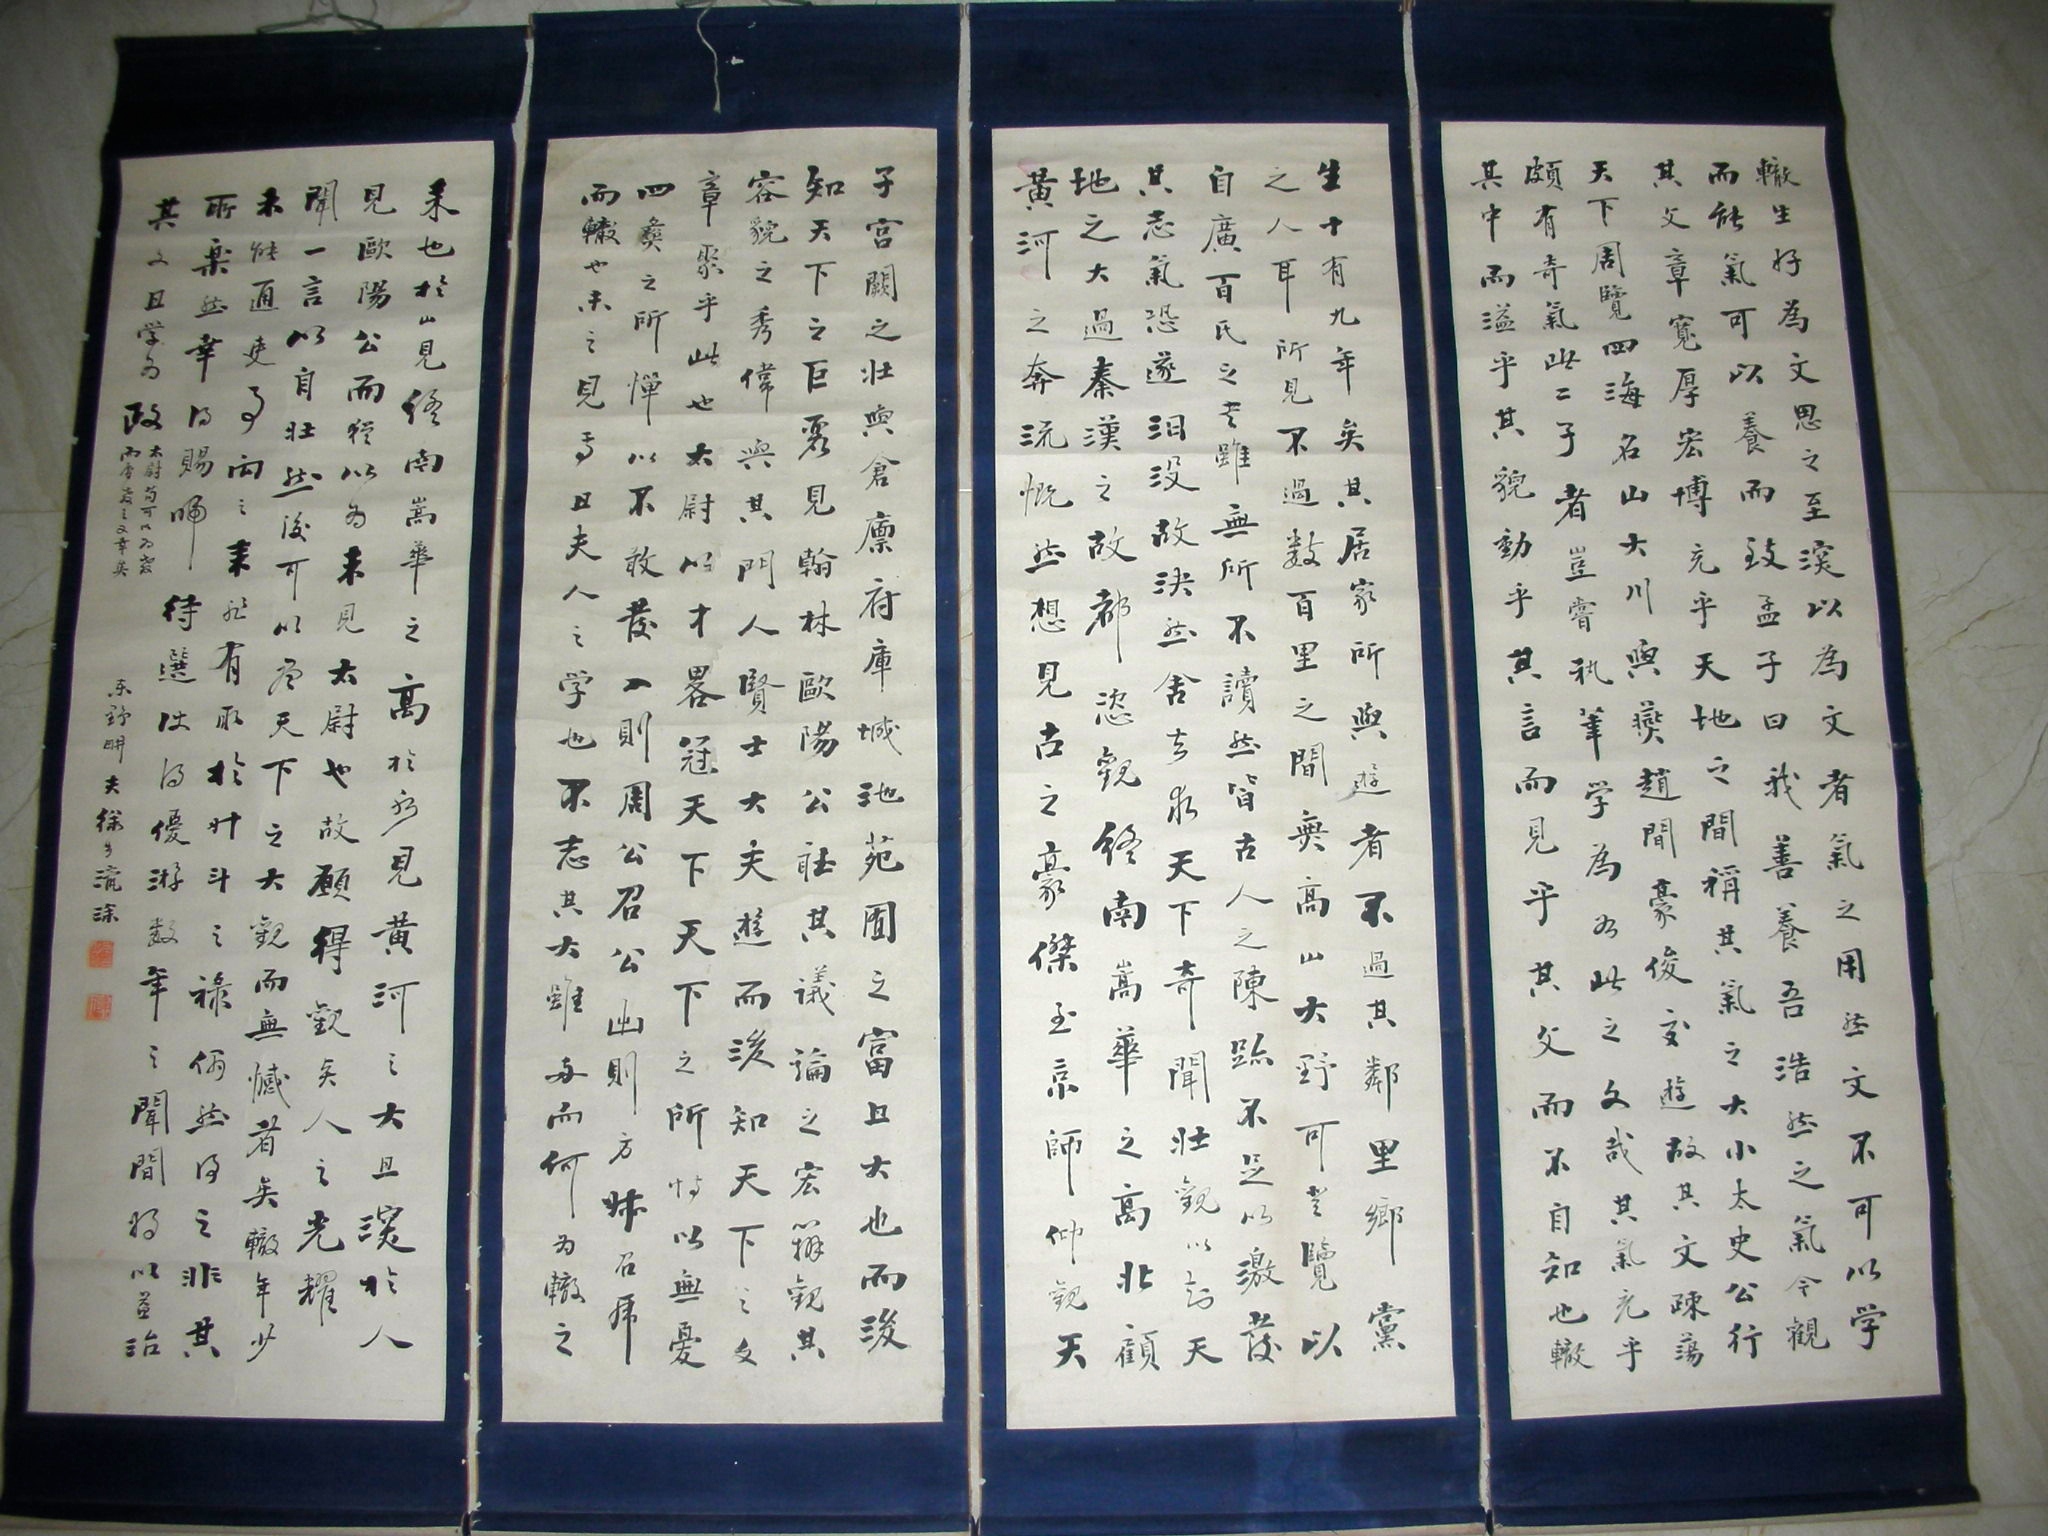 轍生好為文思之至深以為文者氣之用然文不可以学
而能氣可以養而致孟子曰我善養吾浩然之氣今觀
其文章寬厚宏博充乎天地之間稱其氣之大小太史公行
天下周覽四海名山大川與燕趙間豪俊交遊故其文疎蕩
頗有奇氣此二子者豈嘗执筆学為如此之文哉其氣充乎
其中而溢乎其貌動乎其言而見乎其文而不自知也轍
生十有九年矣其居家所與遊者不過其鄰里鄉黨
之人耳所見不過數百里之間無高山大野可登覽以
自廣百氏之書雖無所不讀然皆古人之陳跡不足以激發
其志氣恐遂汩没故決然舍去求天下奇聞壯觀以知天
地之大過秦漢之故都恣觀終南嵩華之高北顧
黃河之奔流慨然想見古之豪傑至京師仰觀天
子宮闕之壯與倉廩府庫城池苑囿之富且大也而後
知天下之巨麗見翰林歐陽公聽其議論之宏辯觀其
容貌之秀偉與其門人賢士大夫遊而後知天下之文
章聚乎此也太尉以才畧冠天下天下之所恃以無憂
四彝之所憚以不敢發入則周公召公出則方叔召虎
而轍也未之見焉且夫人之学也不志其大雖多而何為轍之
来也於山見終南嵩華之高於水見黃河之大且深於人
見歐陽公而猶以為未見太尉也故願得觀矣人之光耀
聞一言以自壯然後可以尽天下之大觀而無憾者矣轍年少
未能通吏事向之来非有取於升斗之禄偶然得之非其
所樂然幸得賜歸待選使得優游数年之間將以益治
其文且学為政太尉苟可以為教
而辱教之又幸矣